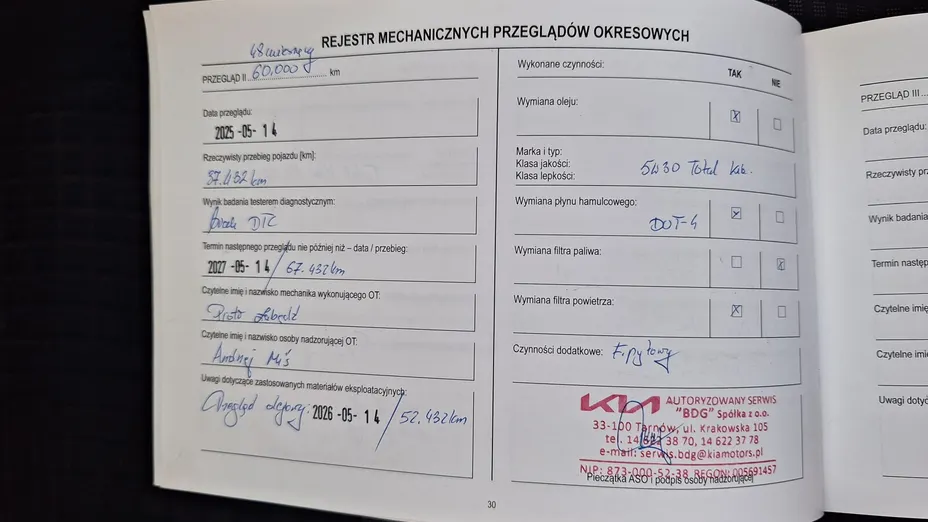 REJESTR MECHANICZNYCH PRZEGLĄDÓW OKRESOWYCH
48 miesięcy
PRZEGLĄD II 60.000 km
Data przeglądu:
2025-05-14
Rzeczywisty przebieg pojazdu [km]:
37.432 km
Wynik badania testerem diagnostycznym:
Brak DTC
Termin następnego przeglądu nie później niż – data / przebieg:
2027-05-14 / 67.432 km
Czytelne imię i nazwisko mechanika wykonującego OT:
Piotr
Czytelne imię i nazwisko osoby nadzorującej OT:
Andrzej Miś
Uwagi dotyczące zastosowanych materiałów eksploatacyjnych:
Przegląd olejowy: 2026-05-14 / 52.432 km
Wykonane czynności:
TAK NIE
Wymiana oleju:
X
Marka i typ:
Klasa jakości:
Klasa lepkości:
5W30 Total
Wymiana płynu hamulcowego:
X
DOT-4
Wymiana filtra paliwa:
X
Wymiana filtra powietrza:
X
Czynności dodatkowe: F. pyłowy
KIA AUTORYZOWANY SERWIS
"BDG" Spółka z o.o.
33-100 Tarnów, ul. Krakowska 105
tel. 14 622 38 70, 14 622 37 78
e-mail: serwis.bdg@kiamotors.pl
NIP: 873-000-52-38 REGON: 005691457
Pieczątka ASO i podpis osoby nadzorującej
30
PRZEGLĄD III ...
Data przeglądu:
Rzeczywisty prz
Wynik badania
Termin następ
Czytelne imię
Czytelne imię
Uwagi dotyc